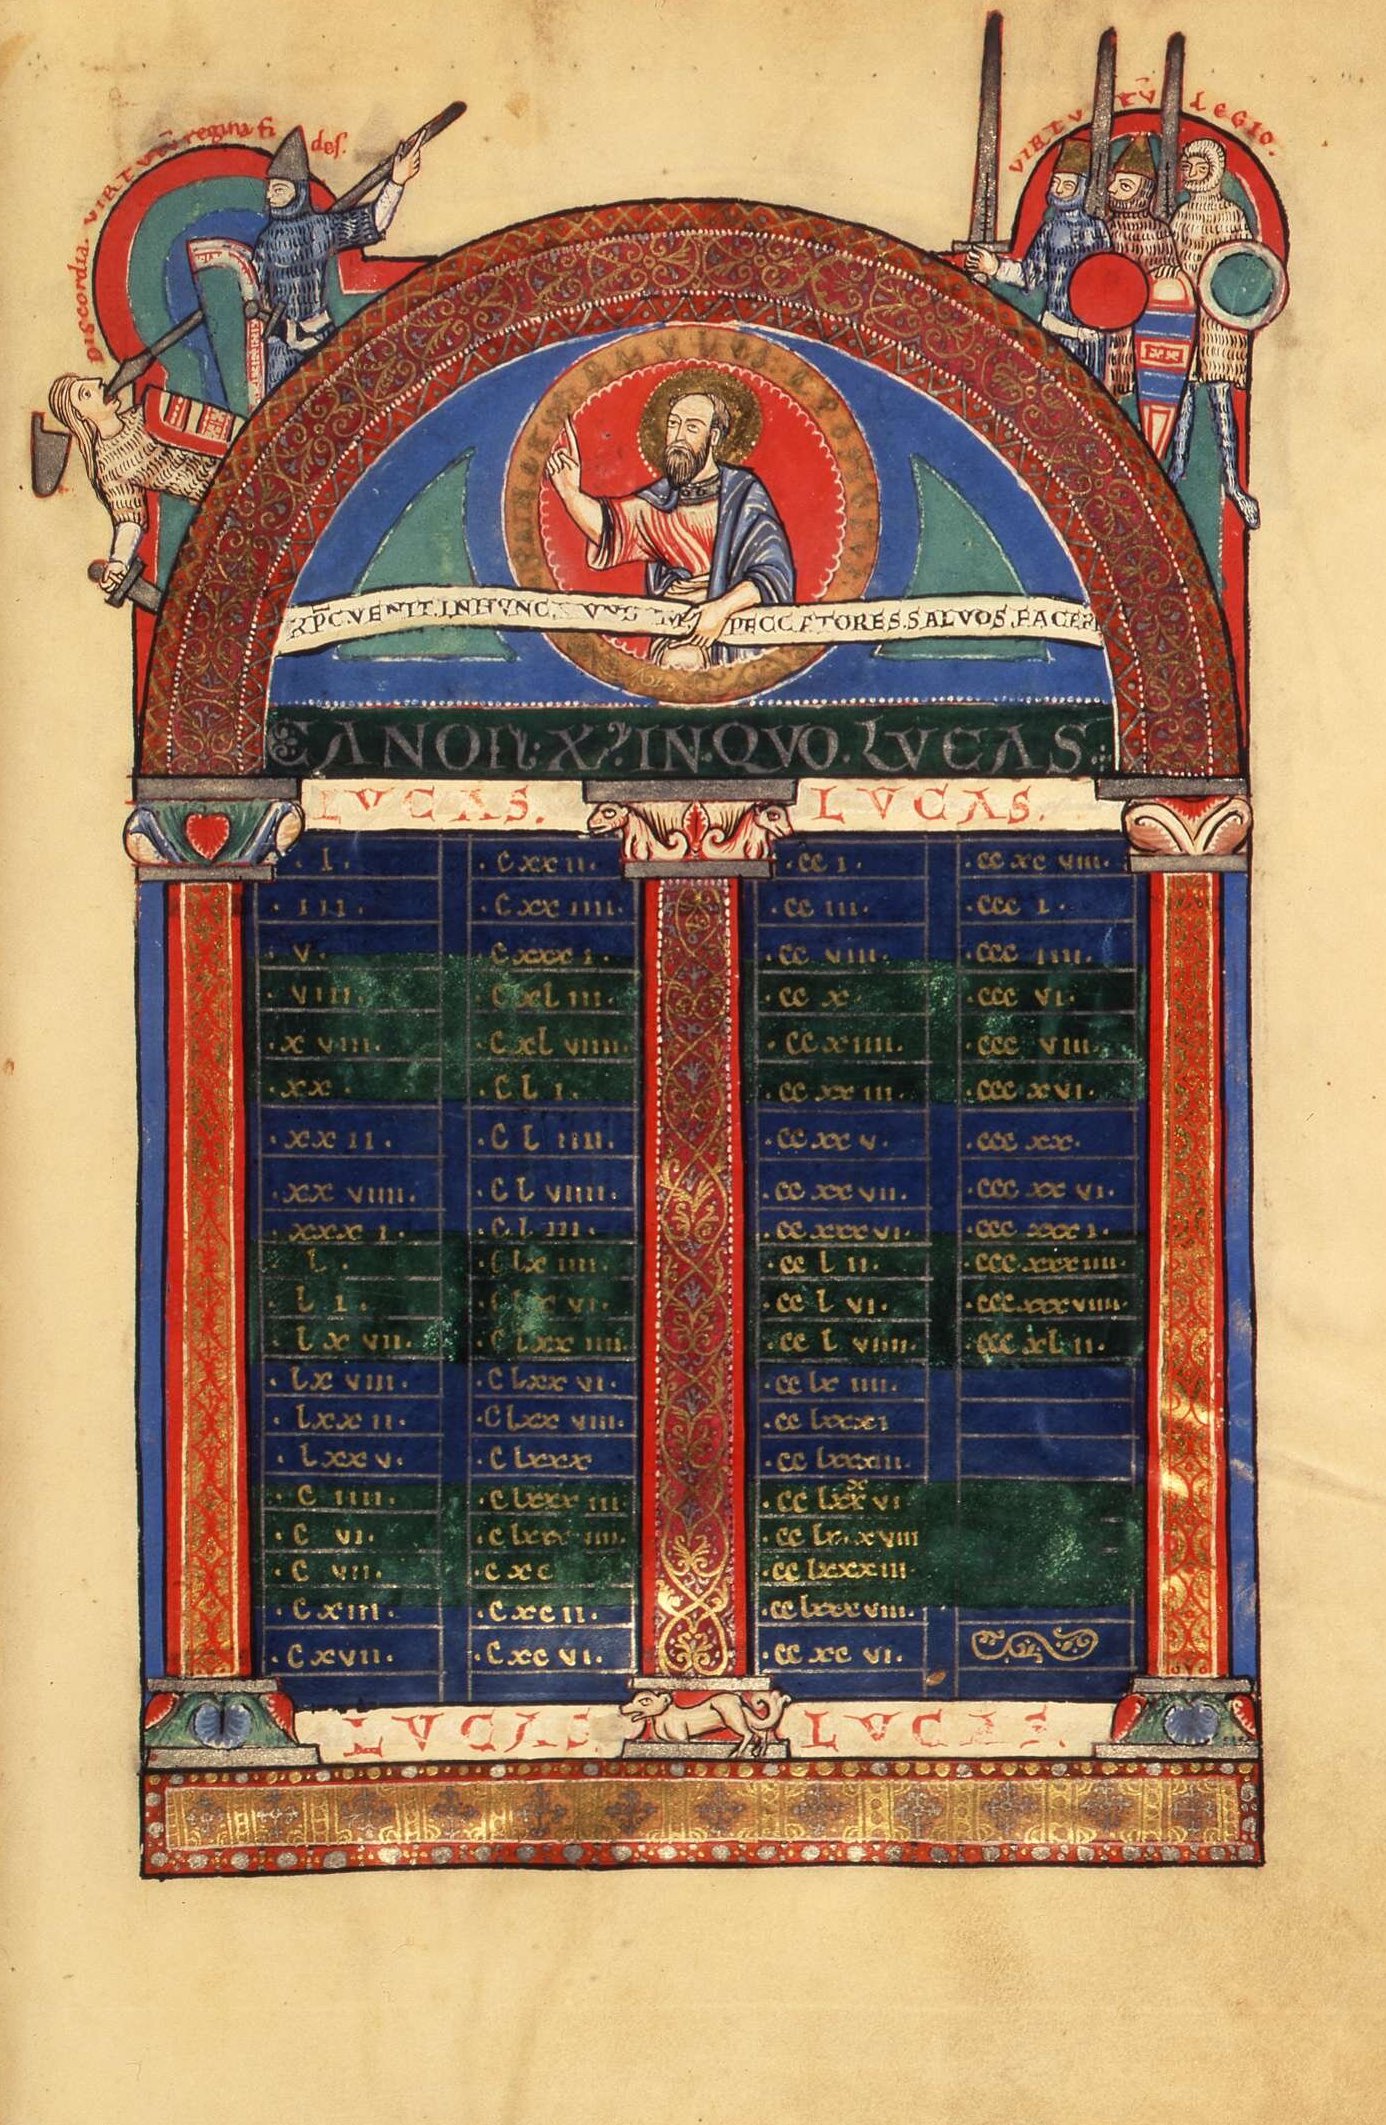 Discordia. VIRTVTV̄ regina fi des.
VIRTVTV̄ LEGIO.
XP̄C.VENIT.INHVNC PECCATORES.SALVOS.FACER
CANON:X IN.QVO.LVCAS:
LVCAS. LVCAS.
.I. .CXXII. .CCI. .CCXCVIII.
.III. .CXXIIII. .CCIII. .CCCI.
.V. .CXXXI. .CCVIII. .CCCIIII.
.VIII. .CXLIII. .CCX. .CCCVI.
.XVIII. .CXLVIIII. .CCXIIII. .CCCVIII.
.XX. .CLI. .CCXXIII. .CCCXVI.
.XXII. .CLIIII. .CCXXV. .CCCXX.
.XXVIIII. .CLVIIII. .CCXXVII. .CCCXXVI.
.XXXI. .CLIII. .CCXXXVI. .CCCXXXI.
.L. .CLXIIII. .CCLII. .CCCXXXIIII.
.LI. .CLXVI. .CCLVI. .CCCXXXVIIII.
.LXVII. .CLXXIIII. .CCLVIIII. .CCCXLII.
.LXVIII. .CLXXVI. .CCLXIIII.
.LXXII. .CLXXVIII. .CCLXXXI
.LXXV. .CLXXX .CCLXXXIII.
.CIIII. .CLXXXIII. .CCLXXXVI
.CVI. .CLXXXIIII. .CCLXXXVIII
.CVII. .CXC .CCLXXXIII.
.CXIII. .CXCII. .CCLXXXVIII.
.CXVII. .CXCVI. .CCXCVI.
LVCAS. LVCAS.